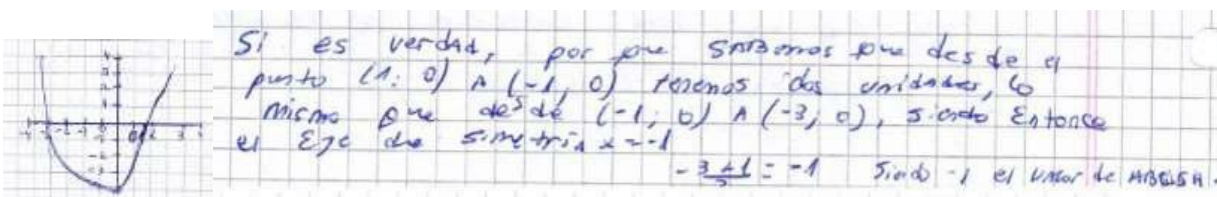 Si es verdad, por que SABemos que desde el
punto (1; 0) A (-1, 0) tenemos dos unidades, lo
mismo que desde (-1; 0) A (-3; 0), siendo Entonce
el Eje de simetriA x = -1
-3+1/2 = -1 Siendo -1 el valor de ABSISA.